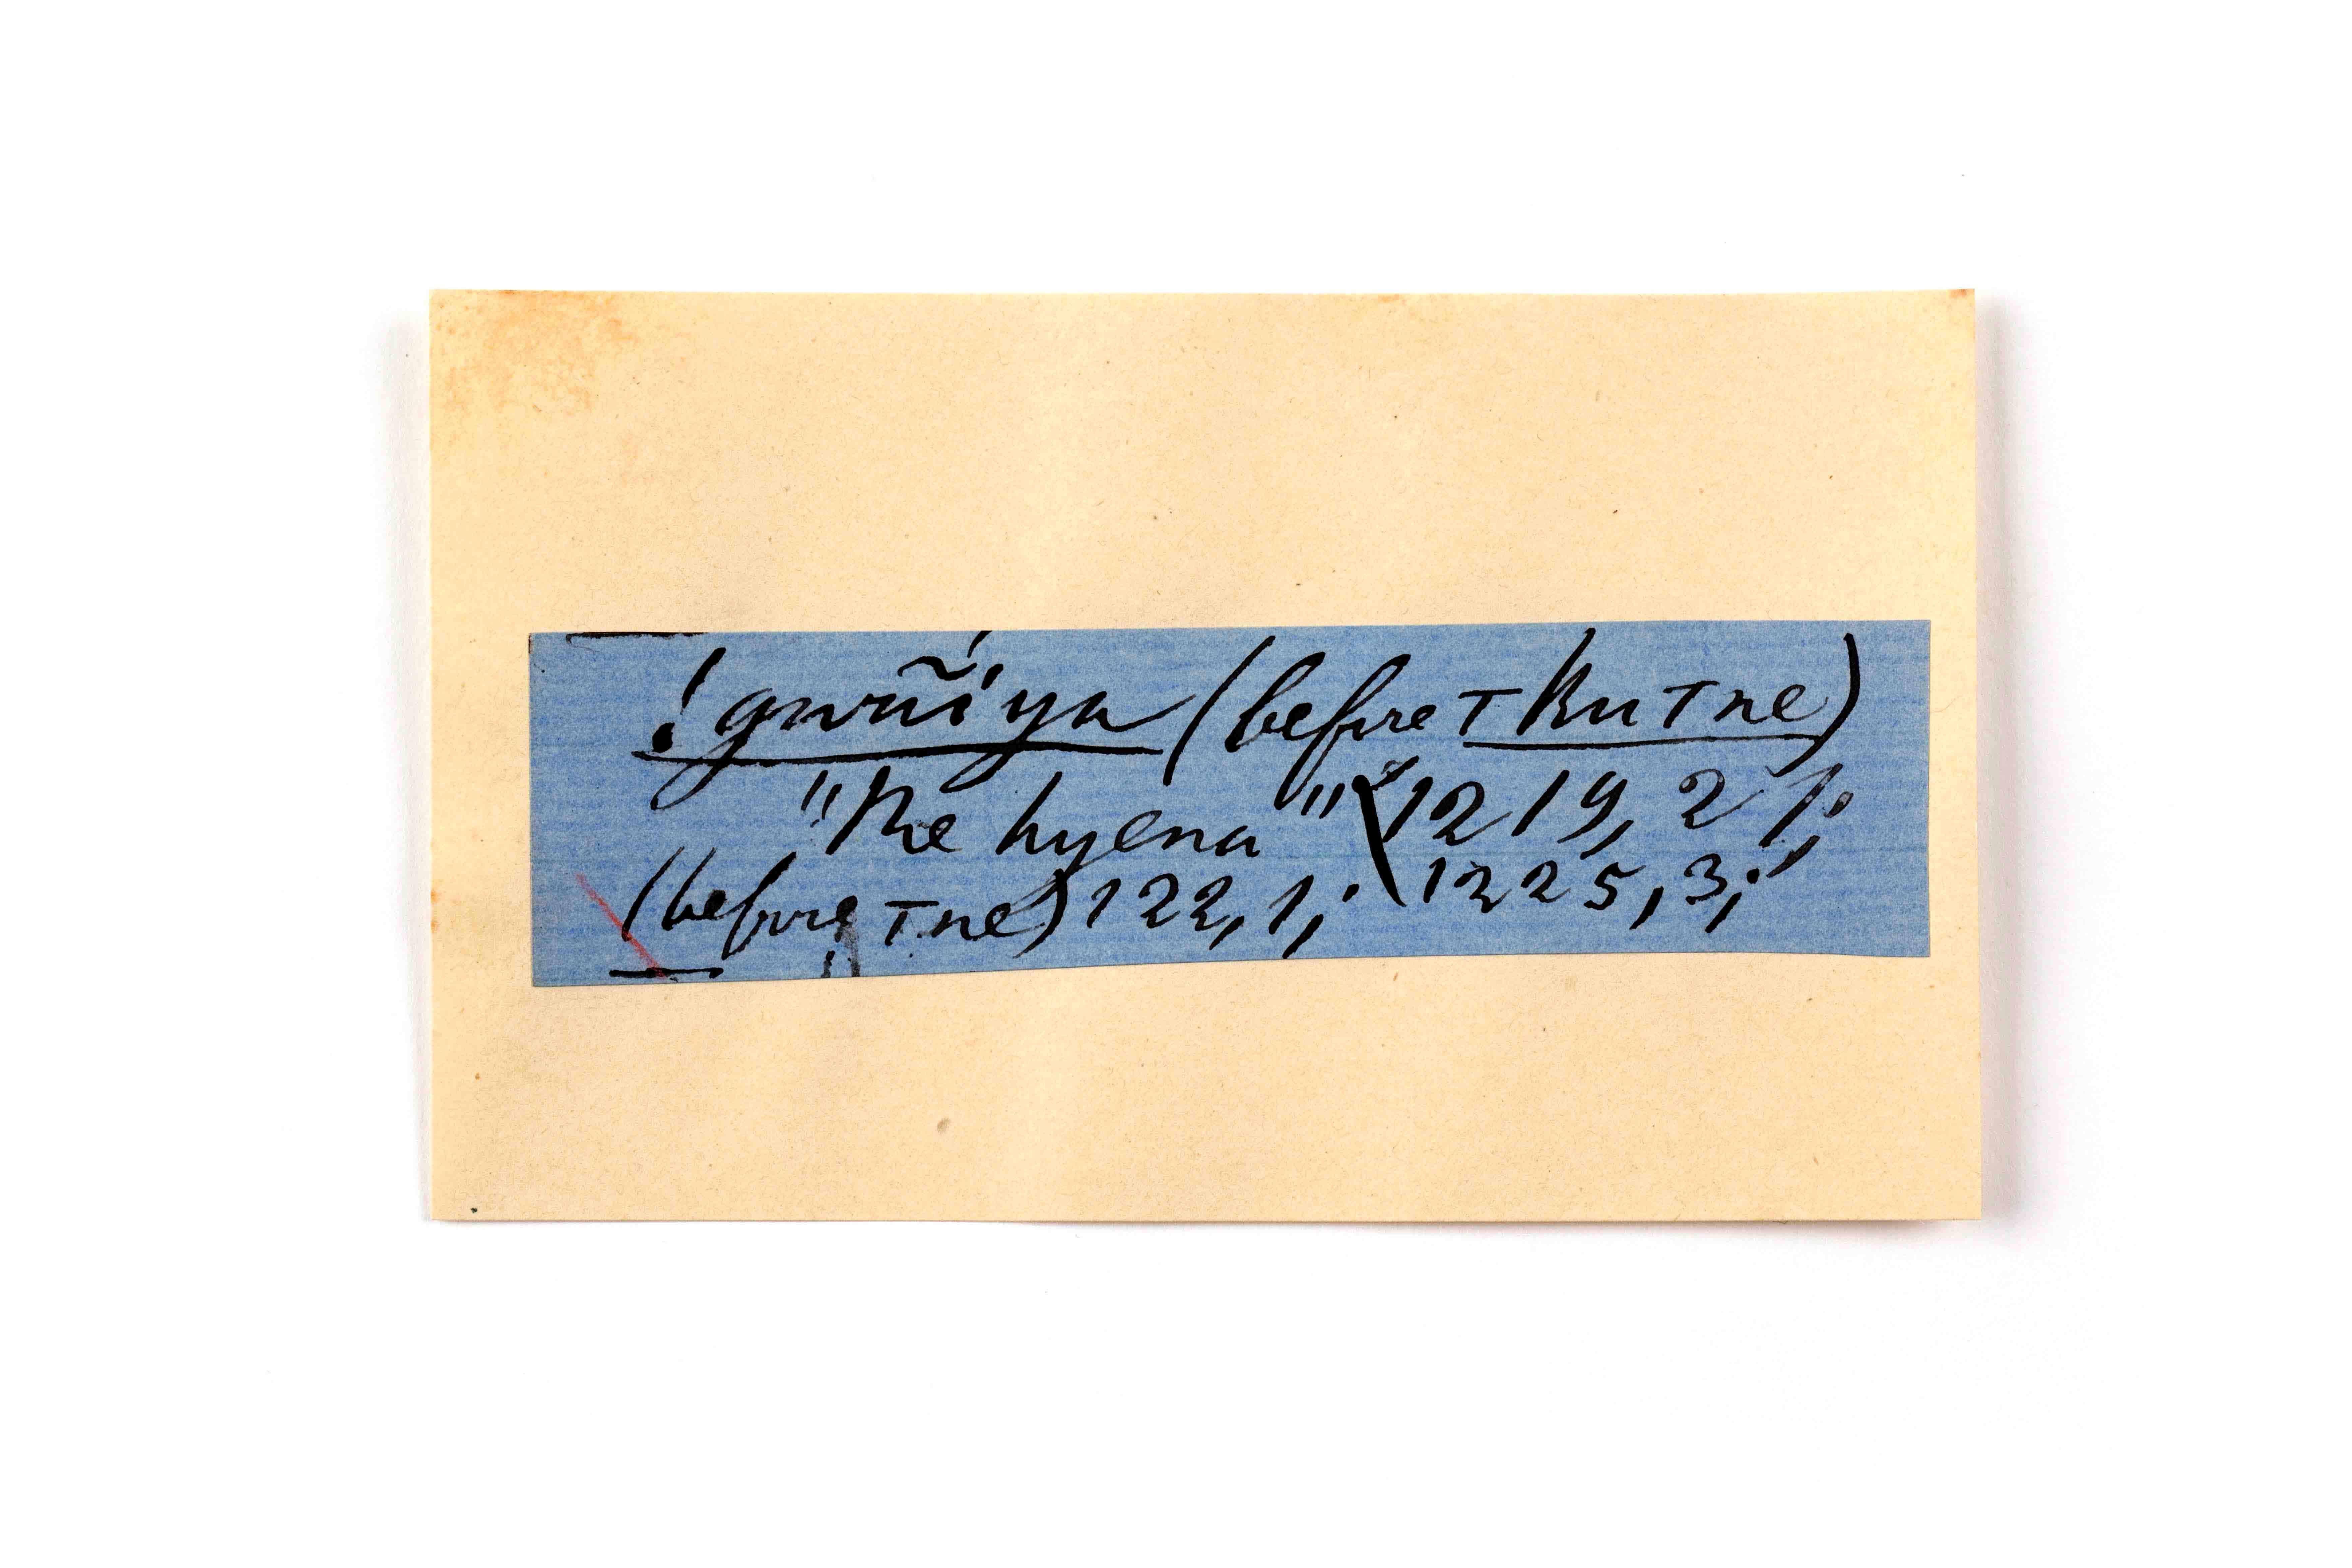 !gwãĩya (before т ku т ne)
"the hyena" (1219, 21;
(before т ne) 122, 1; 1225, 3;